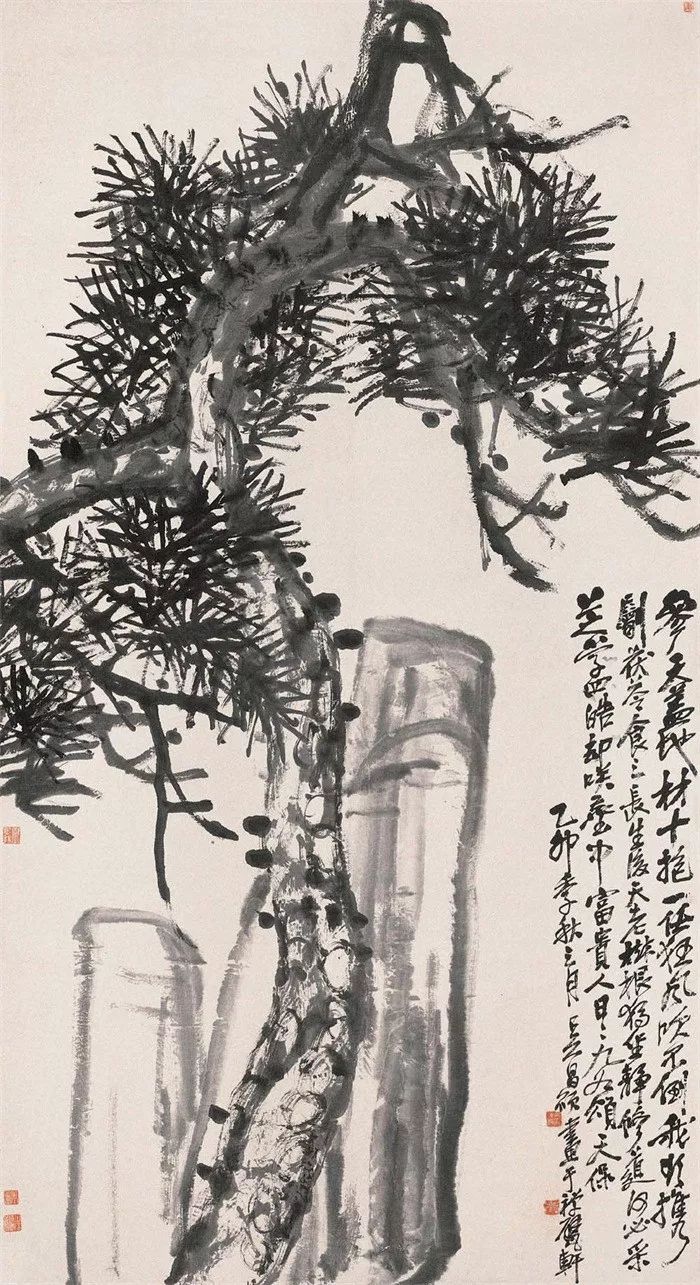 參天蓋地材十抱一任狂風吹不倒我欲攜
劚茯苓食之長生後天老根獨坐靜修何必采
芝學四皓却咲塵中富貴人日日九如頌天保
乙卯季秋之月吳昌碩畫于禪甓軒